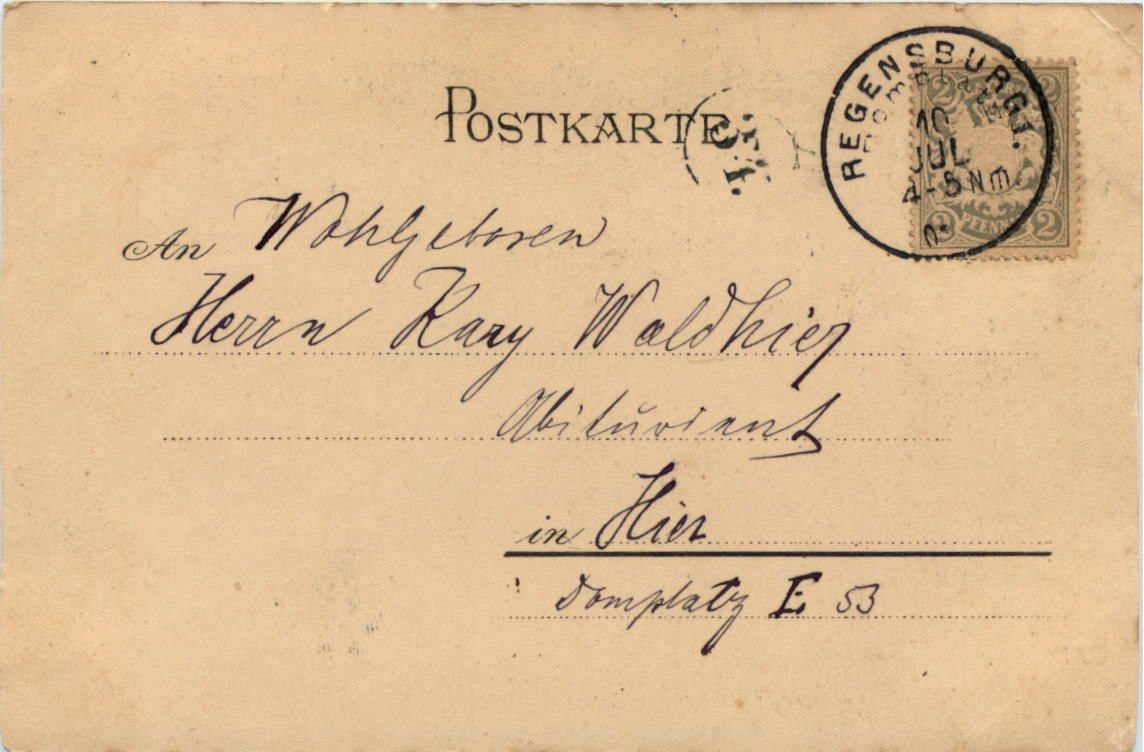 POSTKARTE
REGENSBURG 1.
Domplatz
10
JUL
4-5 Nm
2 2
PFENNIG
2 2
An Wohlgeboren
Herrn Karg Waldhier
Abiturient
in Hier
Domplatz E 53